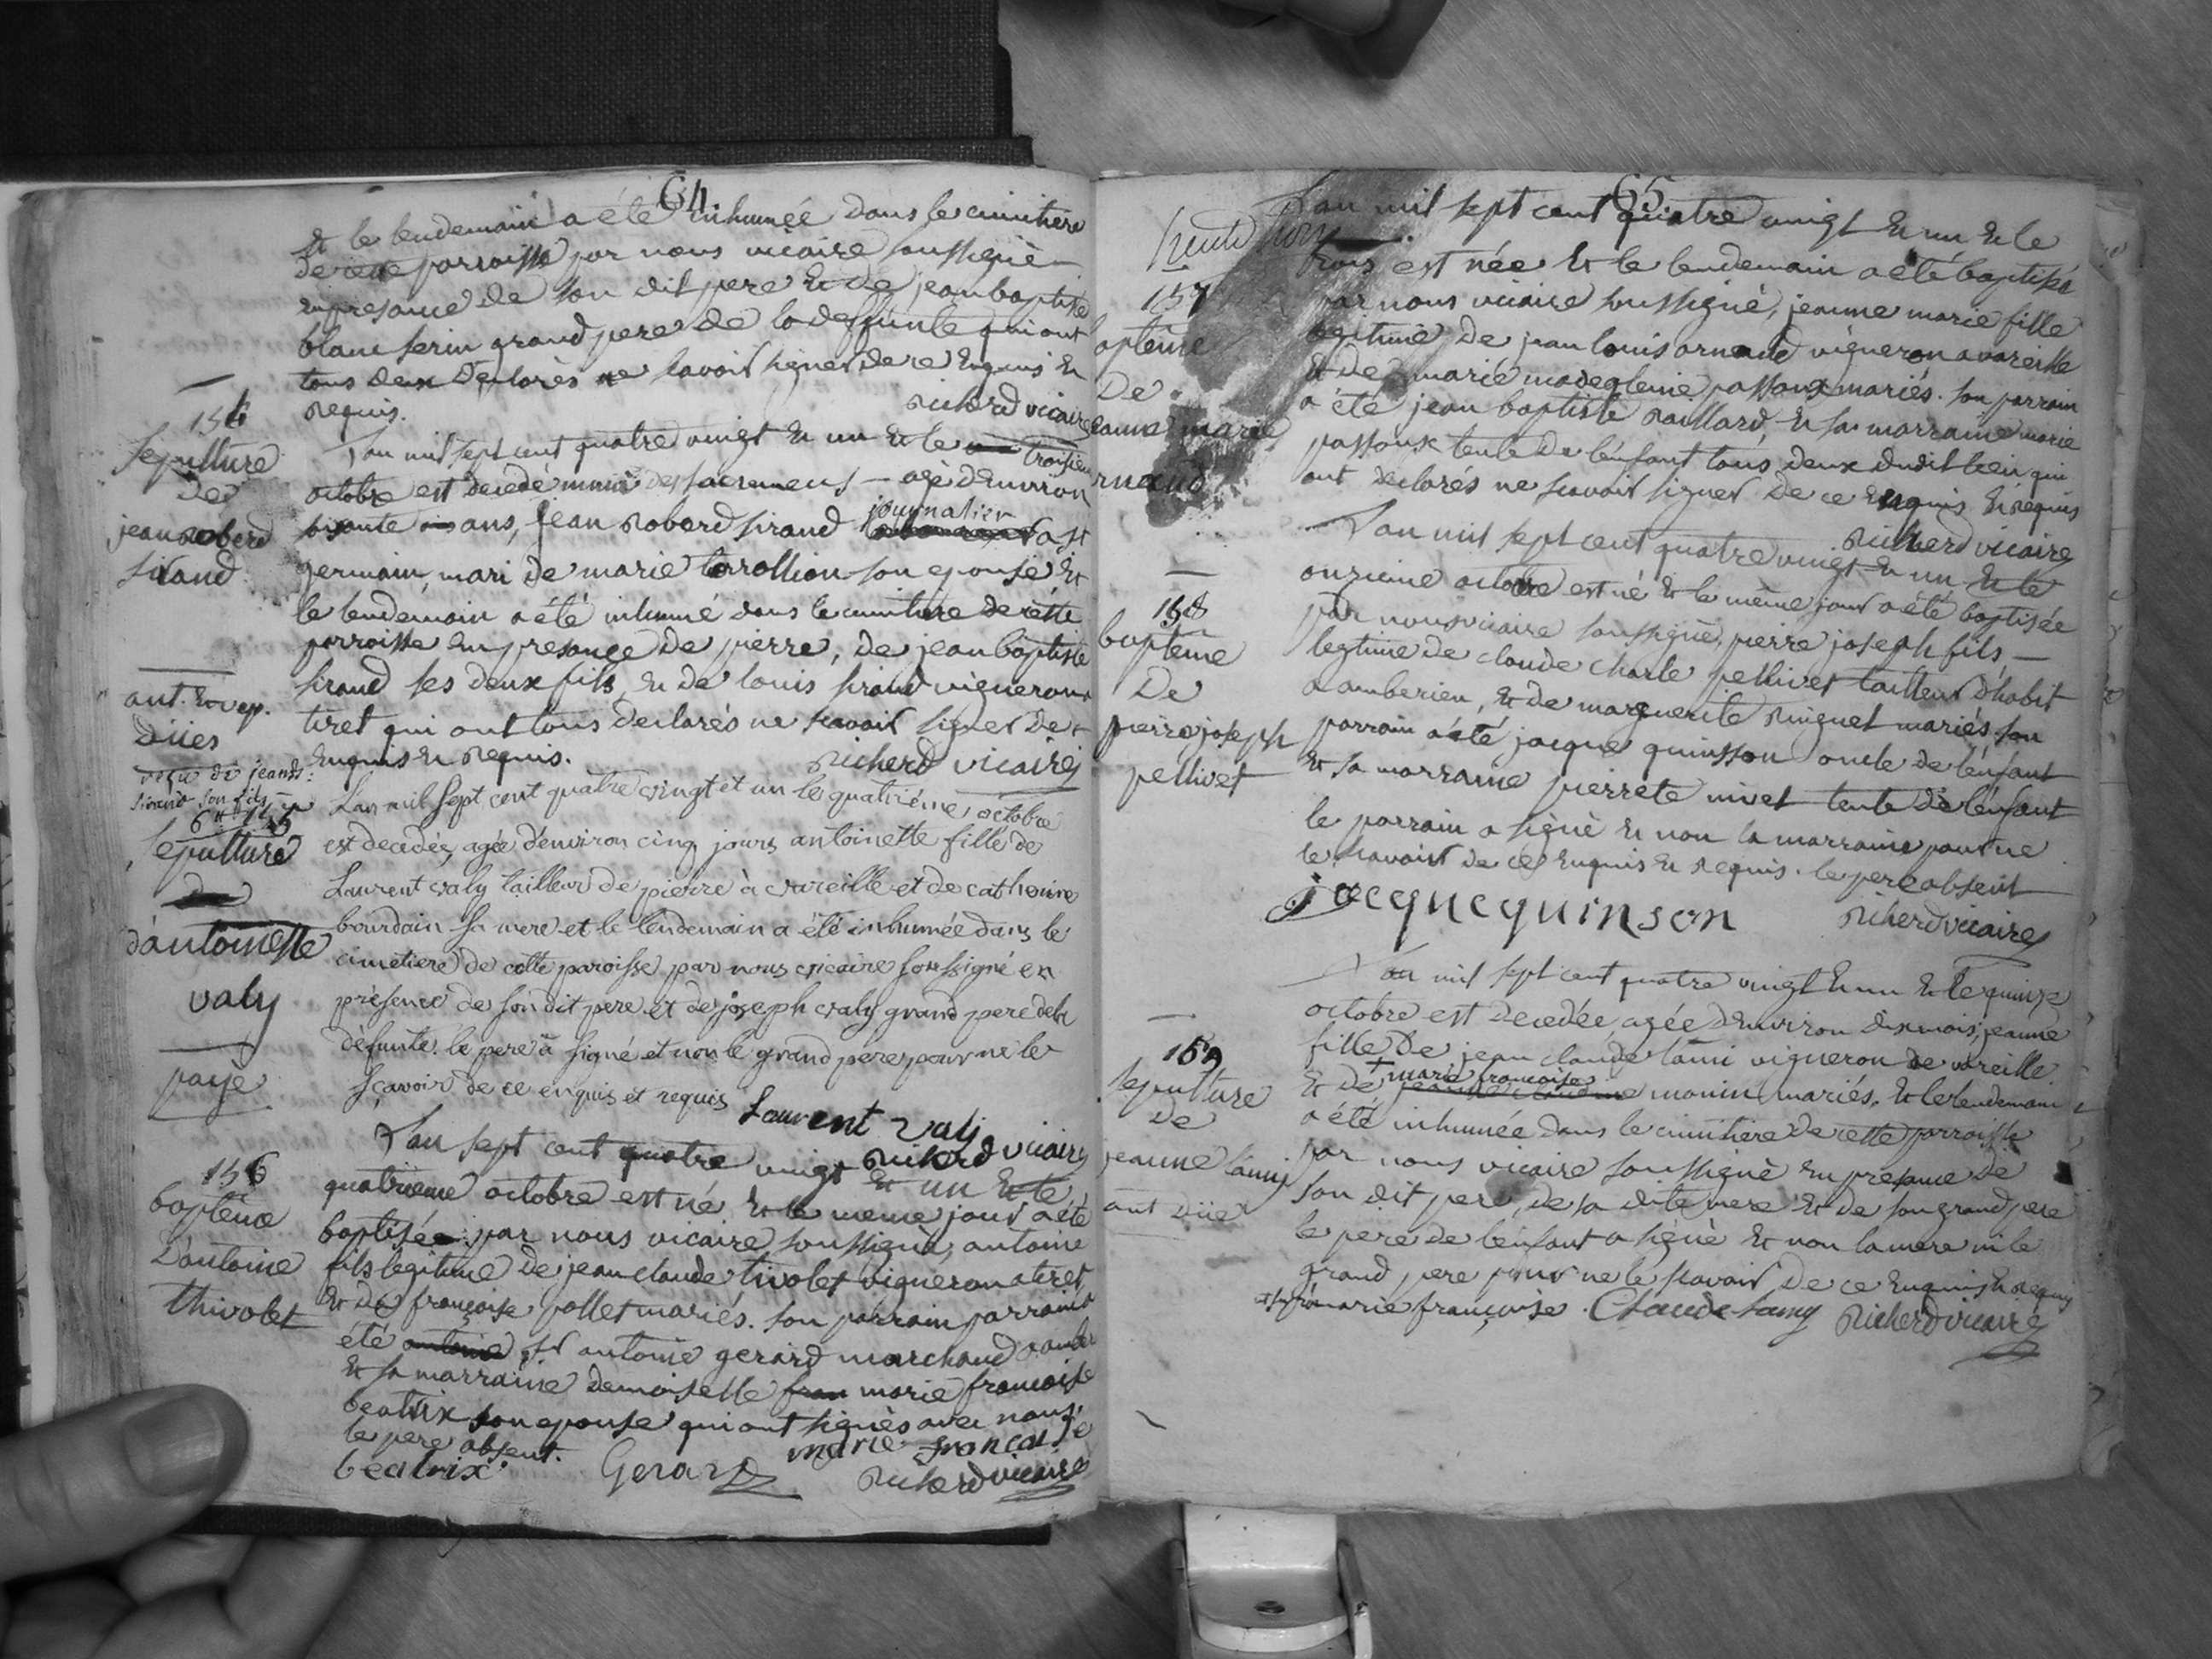 64.
Et le lendemain a été inhumée dans le cimitiere
de cette parroisse par nous vicaire soussigné
en presance de son dit pere et de jean baptiste
blanc serin grand pere de la deffunte qui ont
tous deux declarés ne savoir signer de ce enquis et
requis. richerd vicaire
154
sepulture
de
jean roberd
sirand
ant. et vep.
düies
L'an mil sept cent quatre vingt et un et le troisieme
octobre est decedé muni des sacremens agé d'environ
soisante ans, jean roberd sirand journalier a st
germain, mari de marie torrollion son epouse et
le lendemain a été inhumé dans le cimitiere de cette
parroisse en presance de pierre, de jean baptiste
sirand ses deux fils, et de louis sirand vigneron a
tiret qui ont tous declarés ne scavoir signer de
enquis et requis. richerd vicaire
reçu de jean
sirand son fils
6tt
155
sepulture
d'antoinette
valy
payé
L'an mil sept cent quatre vingt et un le quatriéme octobre
est decedée, agée d'environ cinq jours antoinette fille de
Laurent valy tailleur de pierre à vareille et de catherine
bourdain sa mere et le lendemain a été inhumée dans le
cimetiere de cette paroisse par nous vicaire soussigné en
présence de son dit pere et de joseph valy grand pere de la
défunte. le pere a signé et non le grand pere pour ne le
sçavoir de ce enquis et requis
Laurent valy
richerd vicaire
156
bapteme
d'antoine
thivolet
L'an sept cent quatre vingt et un et le
quatrieme octobre est né et le meme jour a été
baptisée par nous vicaire soussigné, antoine
fils legitime de jean claude tivolet vigneron a tiret
et de françoise pollet mariés. son parrain parrain a
été antoine sr antoine gerard marchand
et sa marraine demoiselle fran marie françoise
beatrix son epouse qui ont signés avec nous,
le pere absent. marie francoise
béatrix. Gerard richerd vicaire
65
157
bapteme
de
jeanne marie
arnaud
L'an mil sept cent quatre vingt et un et le
trois est née et le lendemain a été baptisée
par nous vicaire soussigné, jeanne marie fille
legitime de jean louis arnaud vigneron a vareille
et de marie madeglenie passoux mariés. son parrain
a été jean baptiste raillard, et sa marraine marie
passoux tente de l'enfant tous deux dudit lieu qui
ont declarés ne scavoir signer de ce enquis et requis
richerd vicaire
158
bapteme
de
pierre joseph
pellivet
L'an mil sept cent quatre vingt et un et le
onzieme octobre est né et le même jour a été baptisée
par nous vicaire soussigné, pierre joseph fils
legtime de claude charle pellivet tailleur d'habit
a amberieu, et de marguerite ringuet mariés. son
parrain a été jacque quinsson oncle de l'enfant
et sa marraine pierrete nivet tente de l'enfant
le parrain a signé et non la marraine pour ne
le scavoir de ce enquis et requis. le pere absent
jacque quinson richerd vicaire
159
sepulture
de
jeanne lami
ant düer
L'an mil sept cent quatre vingt et un et le quinze
octobre est decedée, agée d'environ dix mois, jeanne
fille de jean claude lami vigneron de vareille
marie françoise
et de jeanne claudine monin mariés. et le lendemain
a été inhumée dans le cimitiere de cette parroisse
par nous vicaire soussigné en presance de
son dit pere, de sa dite mere et de son grand pere
le pere de l'enfant a signé et non la mere ni le
grand pere pour ne le scavoir de ce enquis et requis
marie françoise. Claude Lamy richerd vicaire